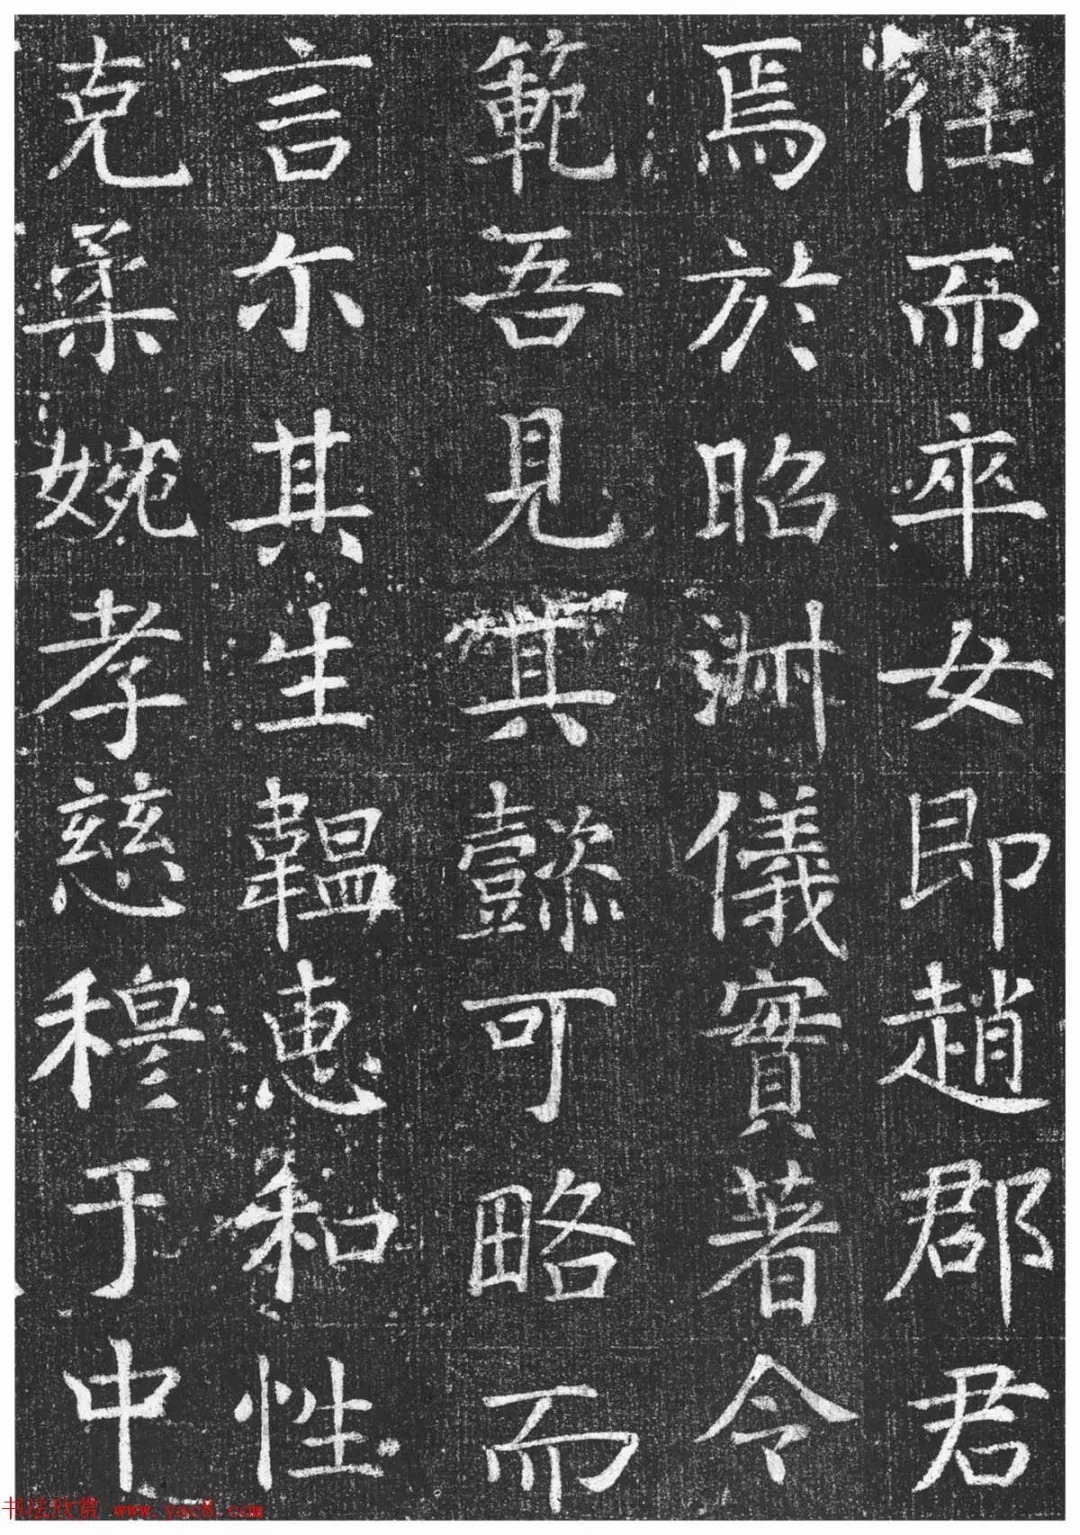 往而卒女即趙郡君
焉於昭淑儀實著令
範吾見其懿可略而
言尓其生韞惠和性
克柔婉孝慈穆于中
书法欣赏 www.yac8.com